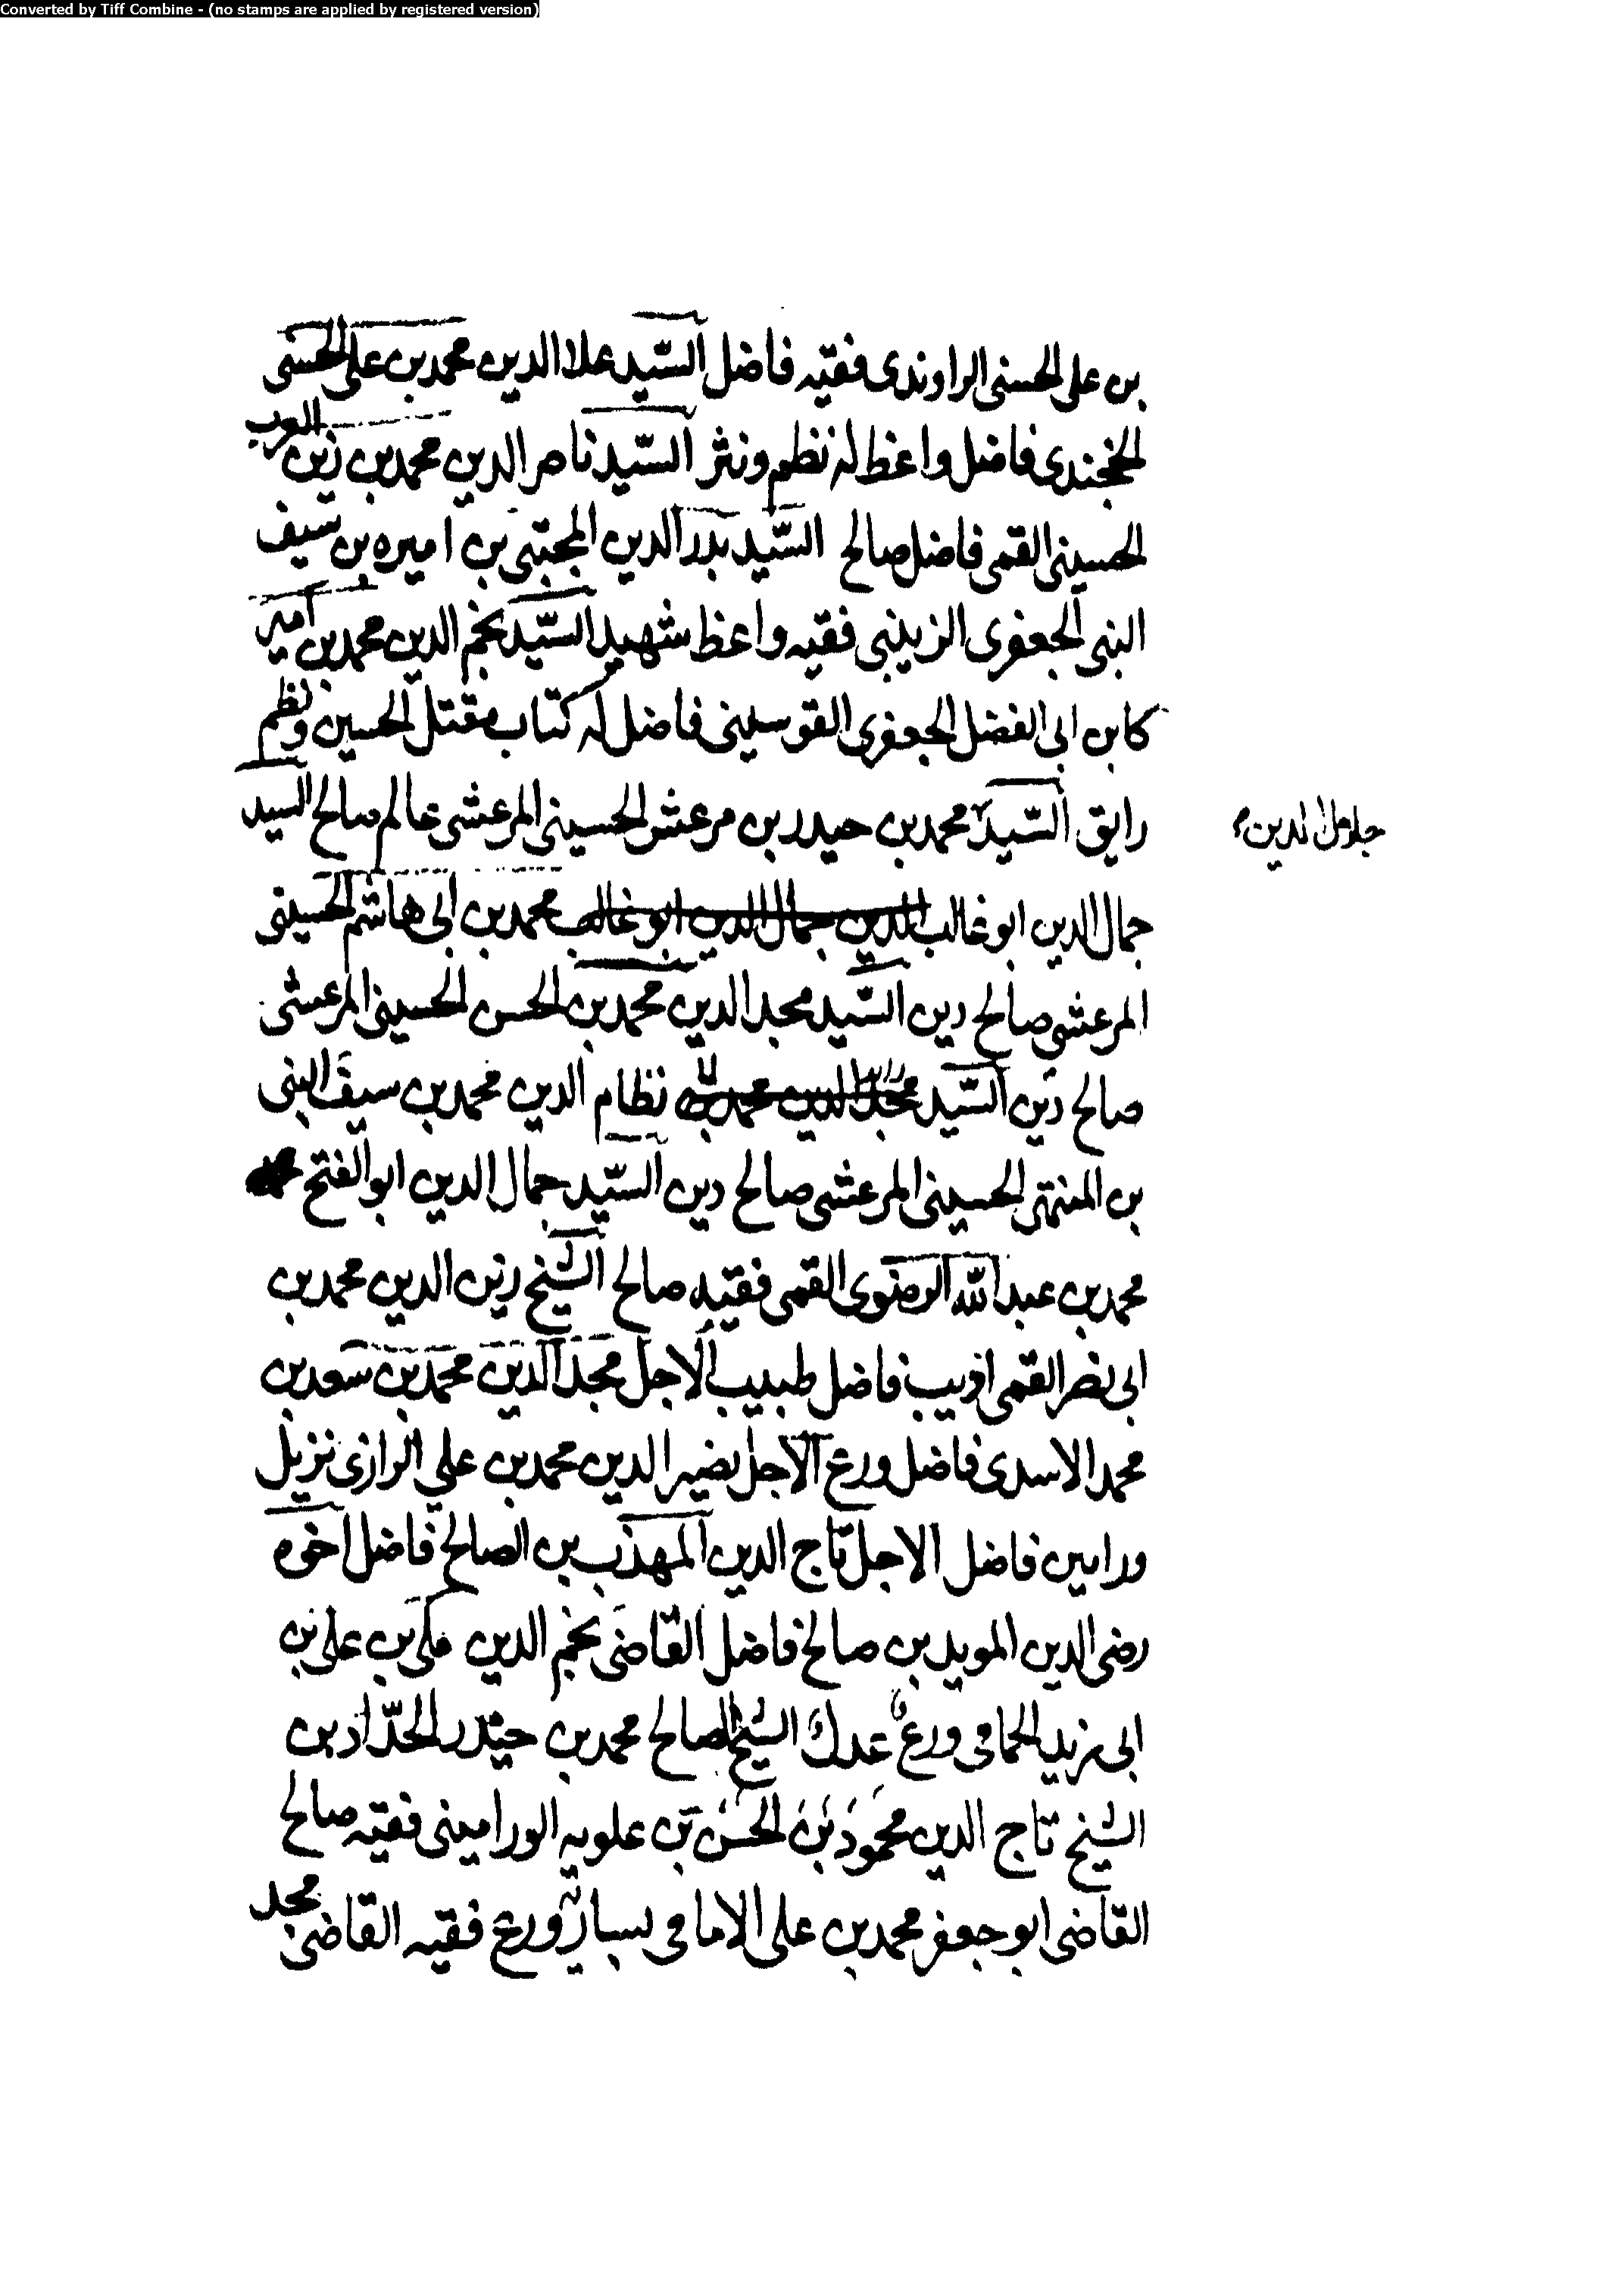 Converted by Tiff Combine - (no stamps are applied by registered version)
بن على الحسنى الراوندى فقيه فاضل السّيد علاا الدين محمد بن على الحسنى
الخجندى فاضل واعظ له نظم ونثر السّيد ناصر الدين محمد بن زين العرب
الحسينى القمى فاضل صالح السّيد بدر الدين المجتبى بن اميره بن سيف
النبى الجعفرى الزينبى فقيه واعظ شهيد السّيد نجم الدين محمد بن امير
كا بن ابى الفضل الجعفرى القوسينى فاضل له كتاب مقتل الحسين ونظم
رايق السّيد محمد بن حيدر بن مرعش الحسينى المرعشى عالم صالح السيد
جلال الدين
جمال الدين ابو غالب الدين جمال الدين ابو غالب محمد بن ابى هاشم الحسينى
المرعشى صالح دين السّيد مجد الدين محمد بن الحسن الحسينى المرعشى
صالح دين السّيد مجد الدين محمد بن نظام الدين محمد بن سيف النبى
بن المنتهى الحسينى المرعشى صالح دين السّيد جمال الدين ابو الفتح
محمد بن عبد الله الرضوى القمى فقيه صالح الشيخ زين الدين محمد بن
ابى نصر القمى اديب فاضل طبيب الاجل مجد الدين محمد بن سعد بن
محمد الاسدى فاضل ورع الاجل نصير الدين محمد بن علي الرازى نزيل
ورامين فاضل الاجل تاج الدين المهذب بن الصالح فاضل اخوه
رضى الدين المويد بن صالح فاضل القاضى نجم الدين مكى بن على بن
ابى زيد الحمامى ورع عدل الشيخ الصالح محمد بن حيدر الحدّاد بن
الشيخ تاج الدين محمود بن الحسن بن علويه الورامينى فقيه صالح
القاضى ابو جعفر محمد بن على الامامى بسارية ورع فقيه القاضى مجد